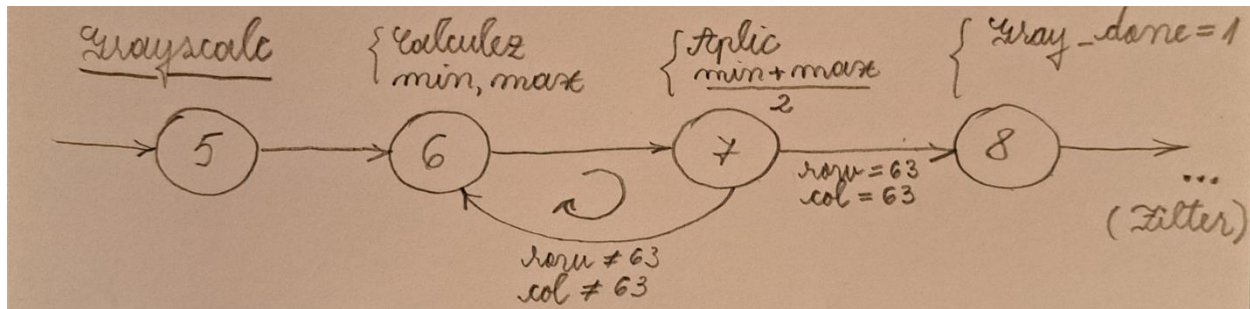 Grayscale
{ Calculez
min, max
{ Aplic
min + max
2
{ Gray_done = 1
5
6
7
8
row = 63
col = 63
...
(Filter)
row ≠ 63
col ≠ 63